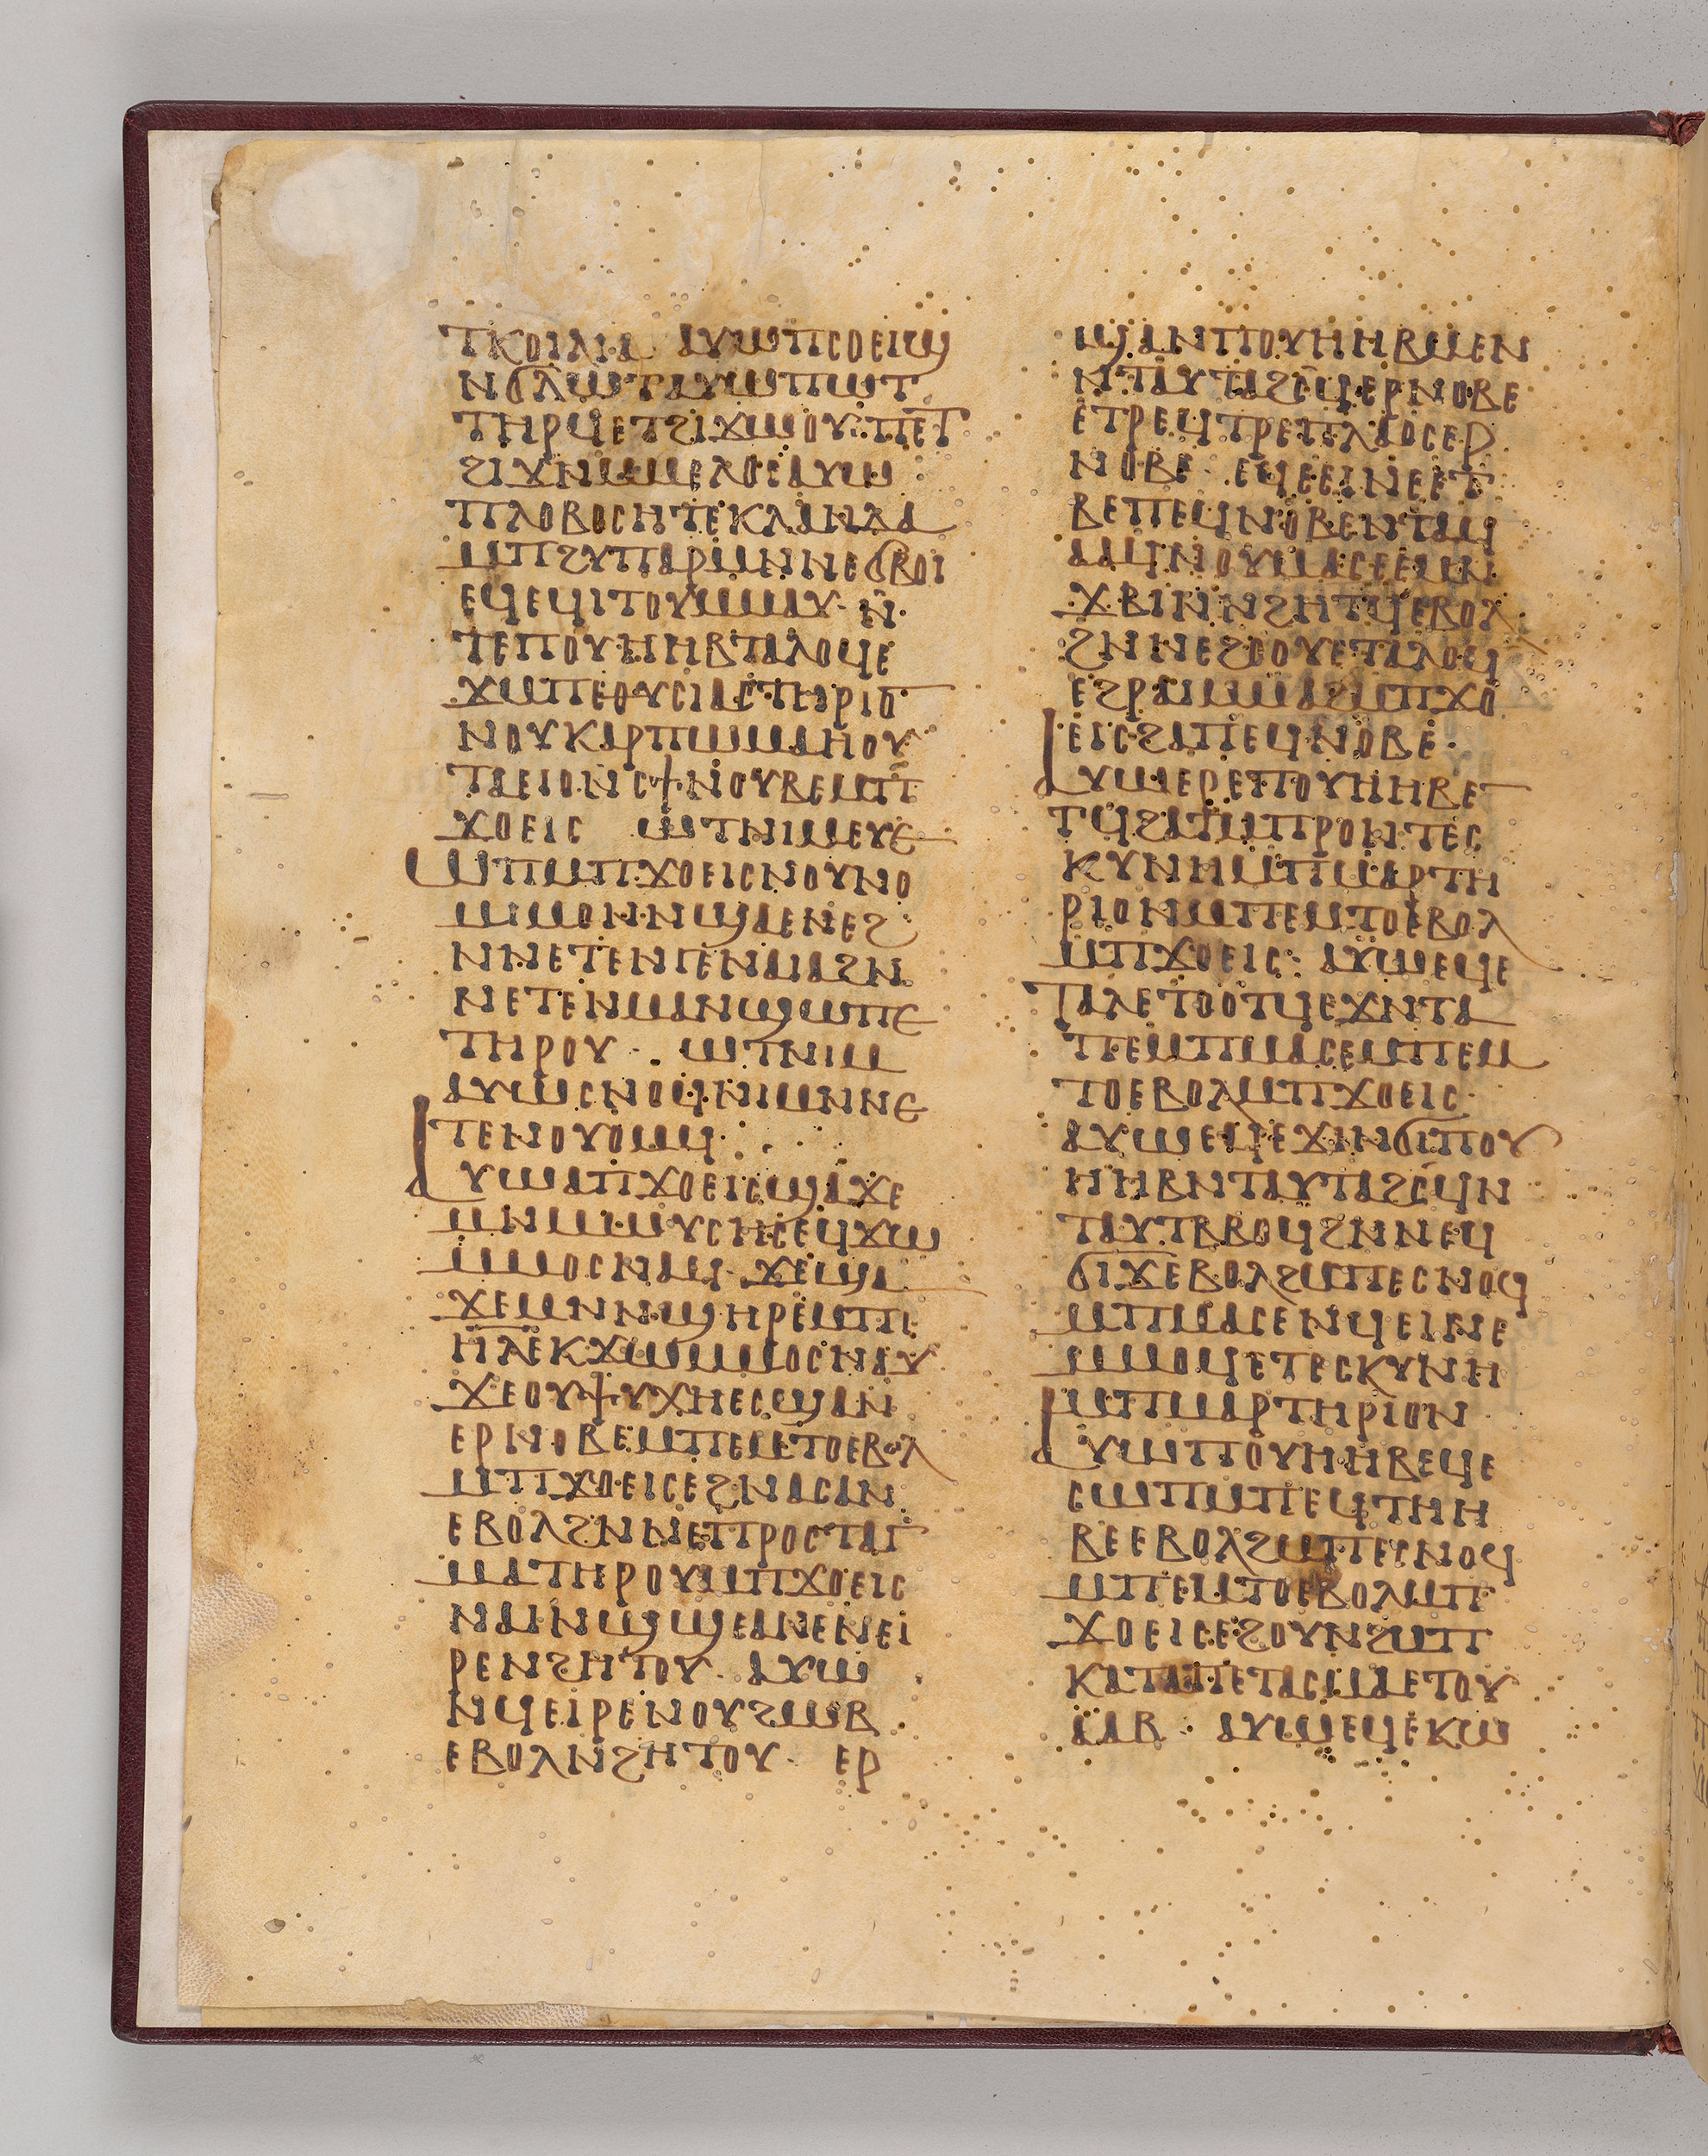 ⲧⲕⲟⲓⲗⲓⲁ ⲁⲩⲱⲡⲥⲟⲉⲓϣ
ⲛϭⲗⲱⲧⲁⲩⲱⲡⲱⲧ
ⲧⲏⲣϥⲉⲧϩⲓϫⲱⲟⲩ· ⲡⲉⲧ
ϩⲓϫⲛⲙⲙⲉⲗⲟⲥⲁⲩⲱ
ⲡⲗⲟⲃⲟⲥⲏⲧⲉⲕⲗⲁⲙⲗⲁ
ⲙⲡϩⲩⲡⲁⲣⲙⲛⲛⲉϭⲃⲟⲓ
ⲉϥⲉϥⲓⲧⲟⲩⲙⲙⲁⲩ· ⲛ̄
ⲧⲉⲡⲟⲩⲏⲏⲃⲧⲁⲗⲟϥⲉ
ϫⲙⲡⲉⲟⲩⲥⲓⲁⲥⲧⲏⲣⲓⲟ̄
ⲛⲟⲩⲕⲁⲣⲡⲱⲙⲁⲛⲟⲩ
ⲧⲁⲉⲓⲟⲛⲥϯⲛⲟⲩⲃⲉⲙⲡ
ϫⲟⲉⲓⲥ ⲱⲧⲛⲓⲙⲉⲩⲉ
ⲱⲡⲙⲡϫⲟⲉⲓⲥⲛⲟⲩⲛⲟ
ⲙⲓⲙⲟⲛⲛϣⲁⲉⲛⲉϩ
ⲛⲛⲉⲧⲉⲛⲅⲉⲛⲁⲓⲁϩⲛ
ⲛⲉⲧⲉⲛⲙⲁⲛϣⲱⲡⲉ
ⲧⲏⲣⲟⲩ· ⲱⲧⲛⲓⲙ
ⲁⲩⲱⲥⲛⲟϥⲛⲓⲙⲛⲛⲉ
ⲧⲉⲛⲟⲩⲟⲙϥ·
ⲁⲩⲱⲁⲡϫⲟⲉⲓⲥϣⲁϫⲉ
ⲙⲛⲙⲱⲩⲥⲏⲥⲉϥϫⲱ
ⲙⲙⲟⲥⲛⲁϥ· ϫⲉϣⲁ
ϫⲉⲙⲛⲛϣⲏⲣⲉⲙⲡⲓ
ⲏⲗⲉⲕϫⲱⲙⲙⲟⲥⲛⲁⲩ
ϫⲉⲟⲩⲯⲩⲭⲏⲉⲥϣⲁⲛ
ⲉⲣⲛⲟⲃⲉⲙⲡⲉⲙⲧⲟⲉⲃⲟⲗ
ⲙⲡϫⲟⲉⲓⲥⲉϩⲛⲁⲥⲁⲛ
ⲉⲃⲟⲗϩⲛⲛⲉⲡⲣⲟⲥⲧⲁⲅ
ⲙⲁⲧⲏⲣⲟⲩⲙⲡϫⲟⲉⲓⲥ
ⲛⲁⲓⲛϣϣⲉⲁⲛⲉⲛⲉⲓ
ⲣⲉⲛϩⲏⲧⲟⲩ· ⲁⲩⲱ
ⲛϥⲉⲓⲣⲉⲛⲟⲩϩⲱⲃ
ⲉⲃⲟⲗⲛϩⲏⲧⲟⲩ· ⲉⲣ
ϣⲁⲛⲡⲟⲩⲏⲏⲃⲙⲉⲛ
ⲛⲧⲁⲩⲧⲁϩⲥϥⲉⲣⲛⲟⲃⲉ
ⲉⲧⲣⲉϥⲧⲣⲉⲡⲗⲁⲟⲥⲉⲣ
ⲛⲟⲃⲉ· ⲉϥⲉⲉⲓⲛⲉⲉⲧ
ⲃⲉⲡⲉϥⲛⲟⲃⲉⲛⲧⲁϥ
ⲁⲁϥⲛⲟⲩⲙⲁⲥⲉⲉⲙⲛ
ϫⲃⲓⲛⲛϩⲏⲧϥⲉⲃⲟⲗ
ϩⲛⲛⲉϩⲟⲟⲩⲉⲧⲁⲗⲟϥ
ⲉϩⲣⲁⲓⲙⲙⲁϩⲙⲡϫⲟ
ⲉⲓⲥϩⲁⲡⲉϥⲛⲟⲃⲉ·
ⲁⲩⲱⲉⲣⲉⲡⲟⲩⲏⲏⲃⲉ
ⲧϥϩⲁⲧⲙⲡⲣⲟⲛⲧⲉⲥ
ⲕⲩⲛⲏⲙⲡⲙⲁⲣⲧⲏ
ⲣⲓⲟⲛⲙⲡⲉⲙⲧⲟⲉⲃⲟⲗ
ⲙⲡϫⲟⲉⲓⲥ: ⲁⲩⲱⲉϥⲉ
ⲧⲁⲗⲉⲧⲟⲟⲧϥⲉϫⲛⲧⲁ
ⲡⲉⲙⲡⲙⲁⲥⲉⲙⲡⲉⲙ
ⲧⲟⲉⲃⲟⲗⲙⲡϫⲟⲉⲓⲥ·
ⲁⲩⲱⲉϥⲉϫⲓⲛϭⲓⲡⲟⲩ
ⲏⲏⲃⲛⲧⲁⲩⲧⲁϩⲥϥⲛ
ⲧⲁⲩⲧⲃⲃⲟϥϩⲛⲛⲉϥ
ϭⲓϫⲉⲃⲟⲗϩⲙⲡⲉⲥⲛⲟϥ
ⲙⲡⲙⲁⲥⲉⲛϥⲉⲓⲛⲉ
ⲙⲙⲟϥⲉⲧⲉⲥⲕⲩⲛⲏ
ⲙⲡⲙⲁⲣⲧⲏⲣⲓⲟⲛ
ⲁⲩⲱⲡⲟⲩⲏⲏⲃⲉϥⲉ
ⲥⲱⲡⲙⲡⲉϥⲧⲏⲏ
ⲃⲉⲉⲃⲟⲗϩⲙⲡⲉⲥⲛⲟϥ
ⲙⲡⲉⲙⲧⲟⲉⲃⲟⲗⲙⲡ
ϫⲟⲉⲓⲥⲉϩⲟⲩⲛϩⲙⲡ
ⲕⲁⲧⲁⲡⲉⲧⲁⲥⲙⲁⲉⲧⲟⲩ
ⲁⲁⲃ· ⲁⲩⲱⲉϥⲉⲕⲱ